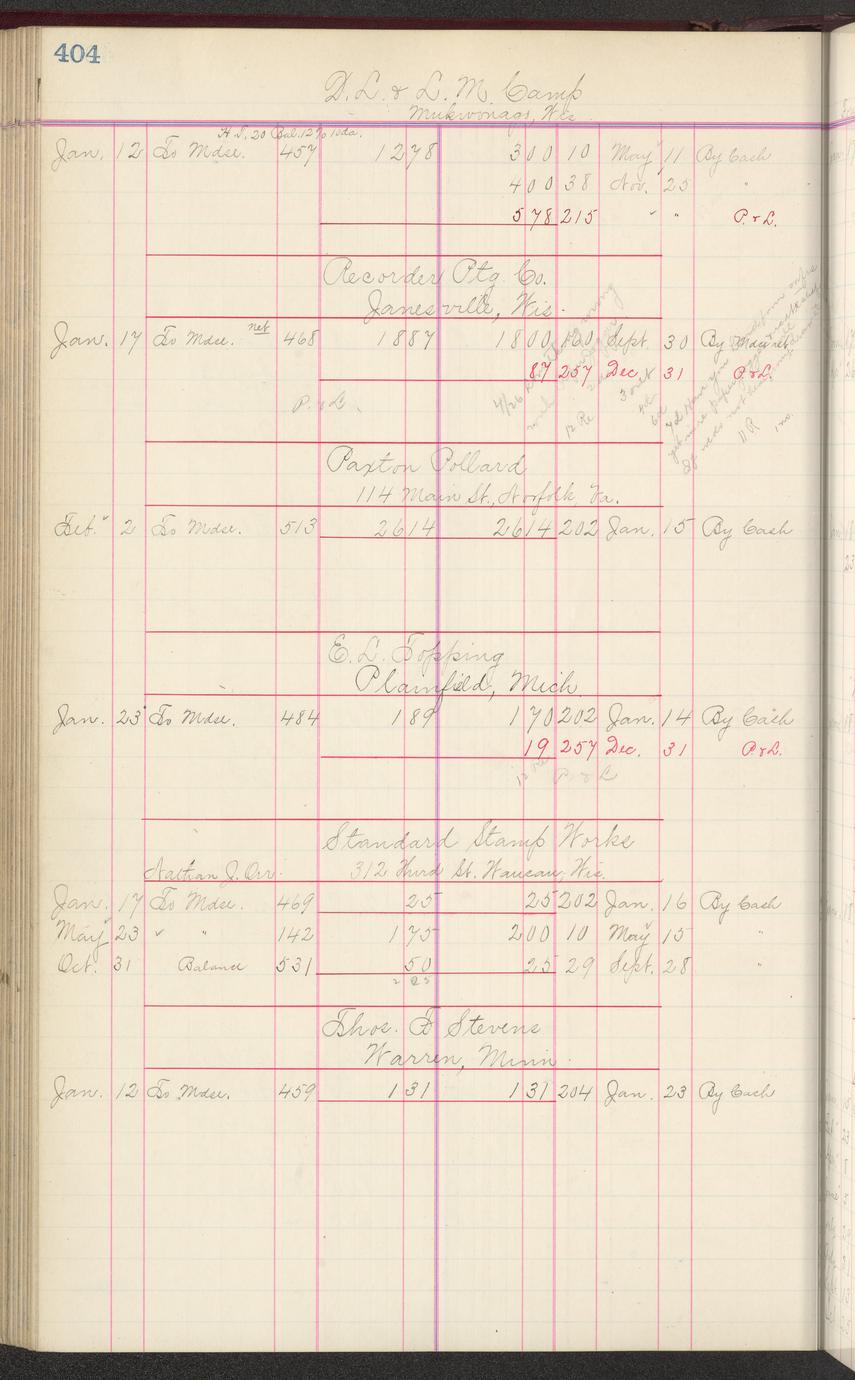 404
D. L. & L. M. Camp
Mukwonago, Wis.
Bal. 12% 10 da.
Jan. 12 To Mdse. 457 12 78 3 00 10 May 11 By Cash
4 00 38 Nov. 25 "
5 78 215 " " P. & L.
Recorder Ptg. Co.
Janesville, Wis.
Jan. 17 To Mdse. net 468 18 87 18 00 160 Sept. 30 By Mdse.
87 257 Dec. 31 P. & L.
P. & L.
Paxton Pollard
114 Main St., Norfolk, Va.
Feb. 2 To Mdse. 513 26 14 26 14 202 Jan. 15 By Cash
E. L. Topping
Plainfield, Mich.
Jan. 23 To Mdse. 484 1 89 1 70 202 Jan. 14 By Cash
19 257 Dec. 31 P. & L.
P. & L
Standard Stamp Works
Nathan J. Orr. 312 Third St. Wausau, Wis.
Jan. 17 To Mdse. 469 25 25 202 Jan. 16 By Cash
May 23 " " 142 1 75 2 00 10 May 15 "
Oct. 31 Balance 531 50 25 29 Sept. 28 "
Thos. F. Stevens
Warren, Minn.
Jan. 12 To Mdse. 459 1 31 1 31 204 Jan. 23 By Cash